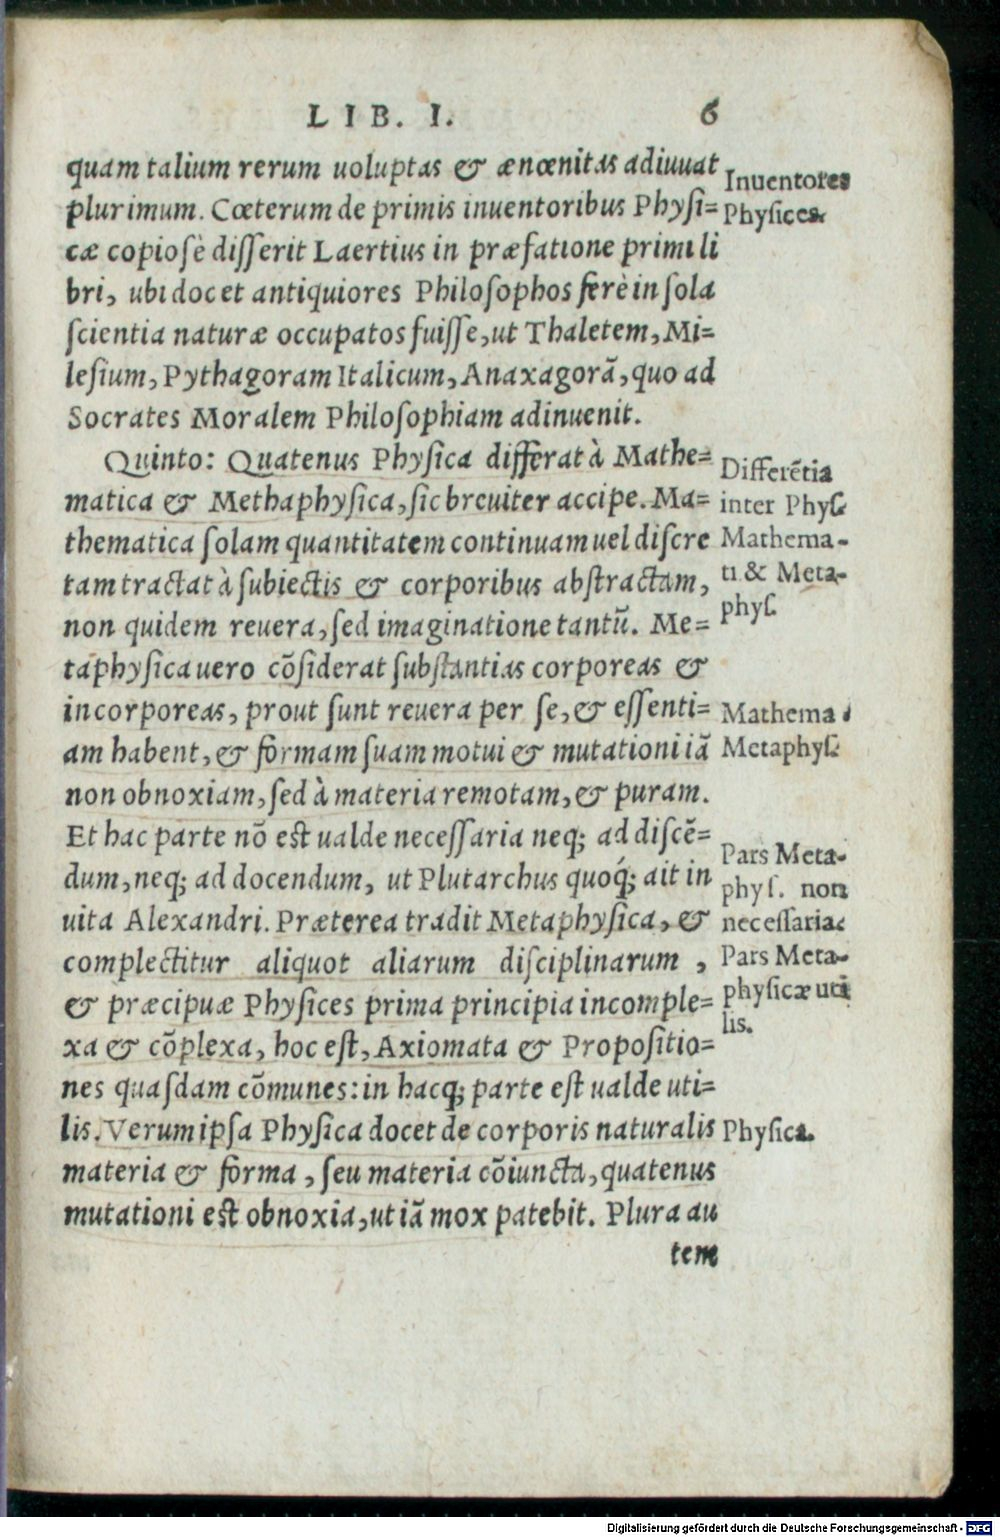 LIB. I. 6
quam talium rerum uoluptas & ænœnitas adiuuat
plurimum. Cœterum de primis inuentoribus Physi=
cæ copiosè disserit Laertius in præfatione primi li
bri, ubi docet antiquiores Philosophos ferè in sola
scientia naturæ occupatos fuisse, ut Thaletem, Mi=
lesium, Pythagoram Italicum, Anaxagorã, quo ad
Socrates Moralem Philosophiam adinuenit.
Inuentores
Physices.
Quinto: Quatenus Physica differat à Mathe=
matica & Methaphysica, sic breuiter accipe. Ma=
thematica solam quantitatem continuam uel discre
tam tractat à subiectis & corporibus abstractam,
non quidem reuera, sed imaginatione tantũ. Me=
taphysica uero cõsiderat substantias corporeas &
incorporeas, prout sunt reuera per se, & essenti=
am habent, & formam suam motui & mutationi iã
non obnoxiam, sed à materia remotam, & puram.
Et hac parte nõ est ualde necessaria neq; ad discẽ=
dum, neq; ad docendum, ut Plutarchus quoq́; ait in
uita Alexandri. Præterea tradit Metaphysica, &
complectitur aliquot aliarum disciplinarum ,
& præcipuæ Physices prima principia incomple=
xa & cõplexa, hoc est, Axiomata & Propositio=
nes quasdam cõmunes: in hacq; parte est ualde uti=
lis. Verum ipsa Physica docet de corporis naturalis
materia & forma, seu materia cõiuncta, quatenus
mutationi est obnoxia, ut iã mox patebit. Plura au
tem
Differẽtia
inter Phys.
Mathema-
ti & Meta-
phys.
Mathema.
Metaphys.
Pars Meta-
phys. non
necessaria.
Pars Meta-
physicæ uti
lis.
Physica.
Digitalisierung gefördert durch die Deutsche Forschungsgemeinschaft - DFG